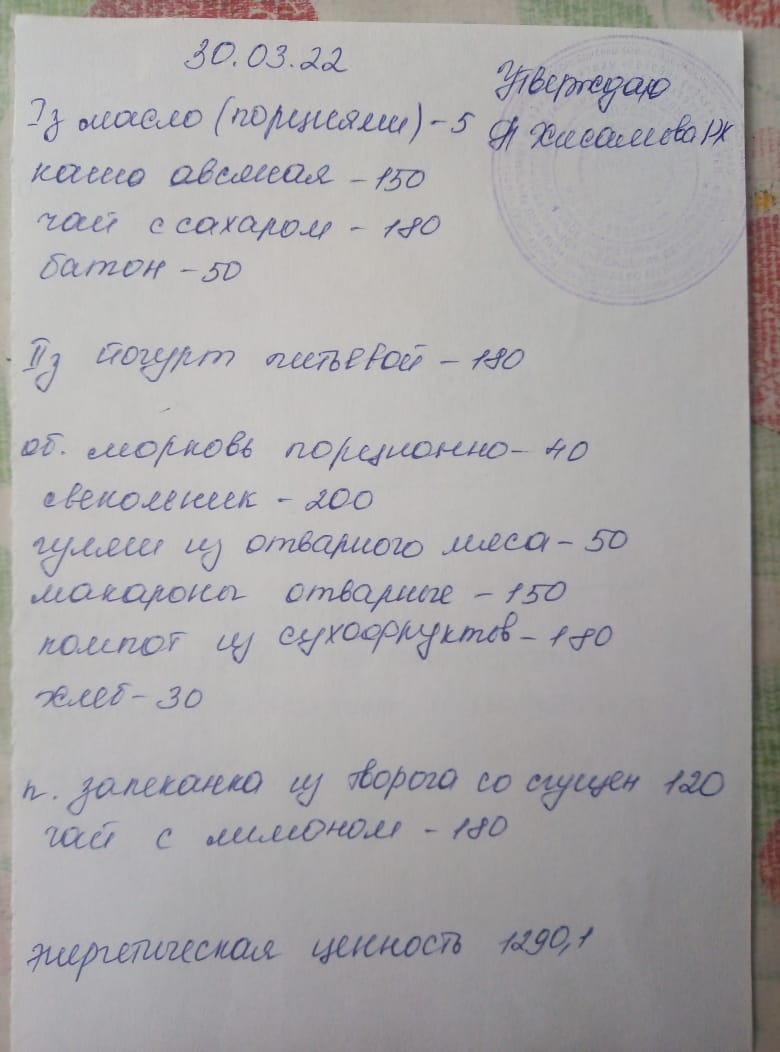 30.03.22
Утверждаю
Хисамова РХ
Iз масло (порциями) - 5
каша овсяная - 150
чай с сахаром - 180
батон - 50
IIз йогурт питьевой - 180
об. морковь порционно - 40
свекольник - 200
гуляш из отварного мяса - 50
макароны отварные - 150
компот из сухофруктов - 180
хлеб - 30
п. запеканка из творога со сгущен 120
чай с лимоном - 180
энергетическая ценность 1290,1